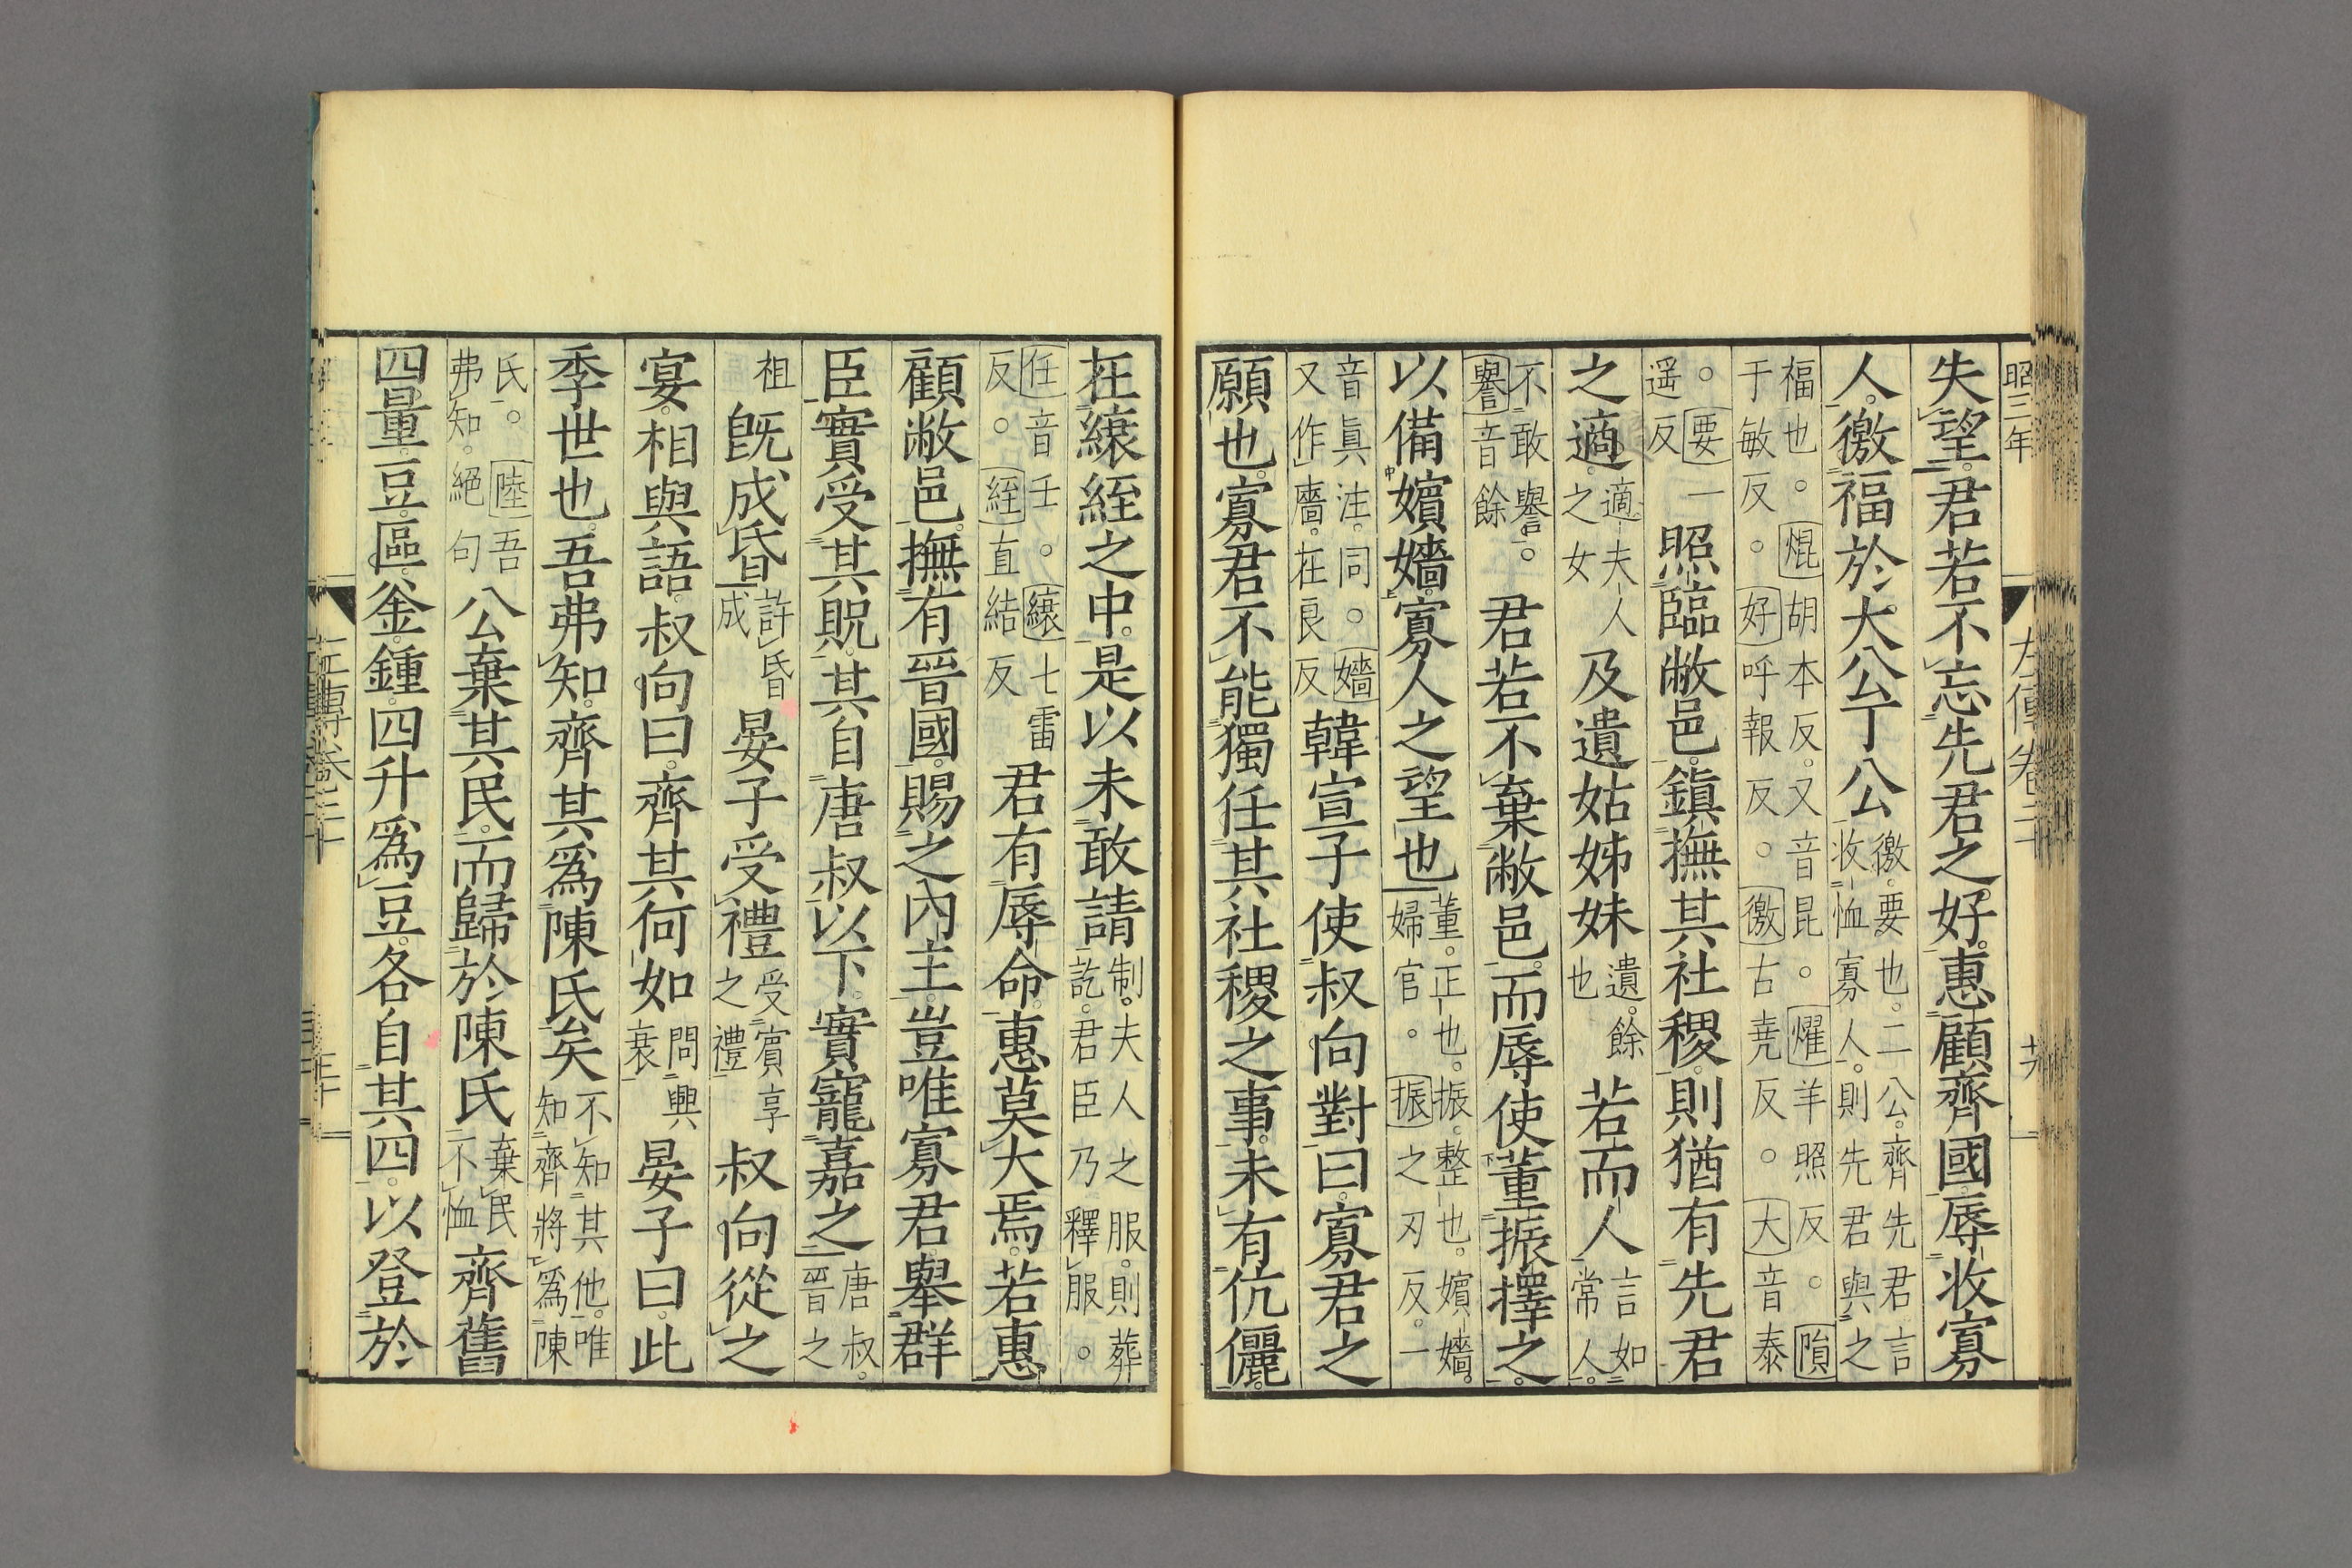 昭三年　左傳卷二十
失望。君若不忘先君之好。惠顧齊國。辱收寡
人。徼福於大公丁公徼。要也。二公。齊先君。言收恤寡人。則先君與之
福也。焜胡本反。又音昆。燿羊照反。隕于敏反。好呼報反。徼古堯反。大音泰
。要一遥反照臨敝邑。鎮撫其社稷。則猶有先君
之適。適夫人之女及遺姑姊妹遺。餘也若而人言如常人。
不敢譽。譽音餘君若不棄敝邑。而辱使董振擇之。
以備嬪嬙。寡人之望也董。正也。振。整也。嬪嬙。婦官。振之刃反。一
音眞注。同。嬙又作廧。在良反韓宣子使叔向對曰。寡君之
願也。寡君不能獨任其社稷之事。未有伉儷。
在縗絰之中。是以未敢請制。夫人之服。則葬訖。君臣乃釋服。
任音壬。縗七雷反。絰直結反君有辱命。惠莫大焉。若惠
顧敝邑。撫有晉國。賜之內主。豈唯寡君。舉群
臣實受其貺。其自唐叔以下。實寵嘉之唐叔。晉之
祖既成昏許昏成晏子受禮受賓享之禮叔向從之
宴。相與語。叔向曰。齊其何如問興衰晏子曰。此
季世也。吾弗知。齊其爲陳氏矣不知其他。唯知齊將爲陳
氏。陸吾弗知。絕句公棄其民。而歸於陳氏棄民不恤齊舊
四量。豆。區。釜。鍾。四升爲豆。各自其四。以登於